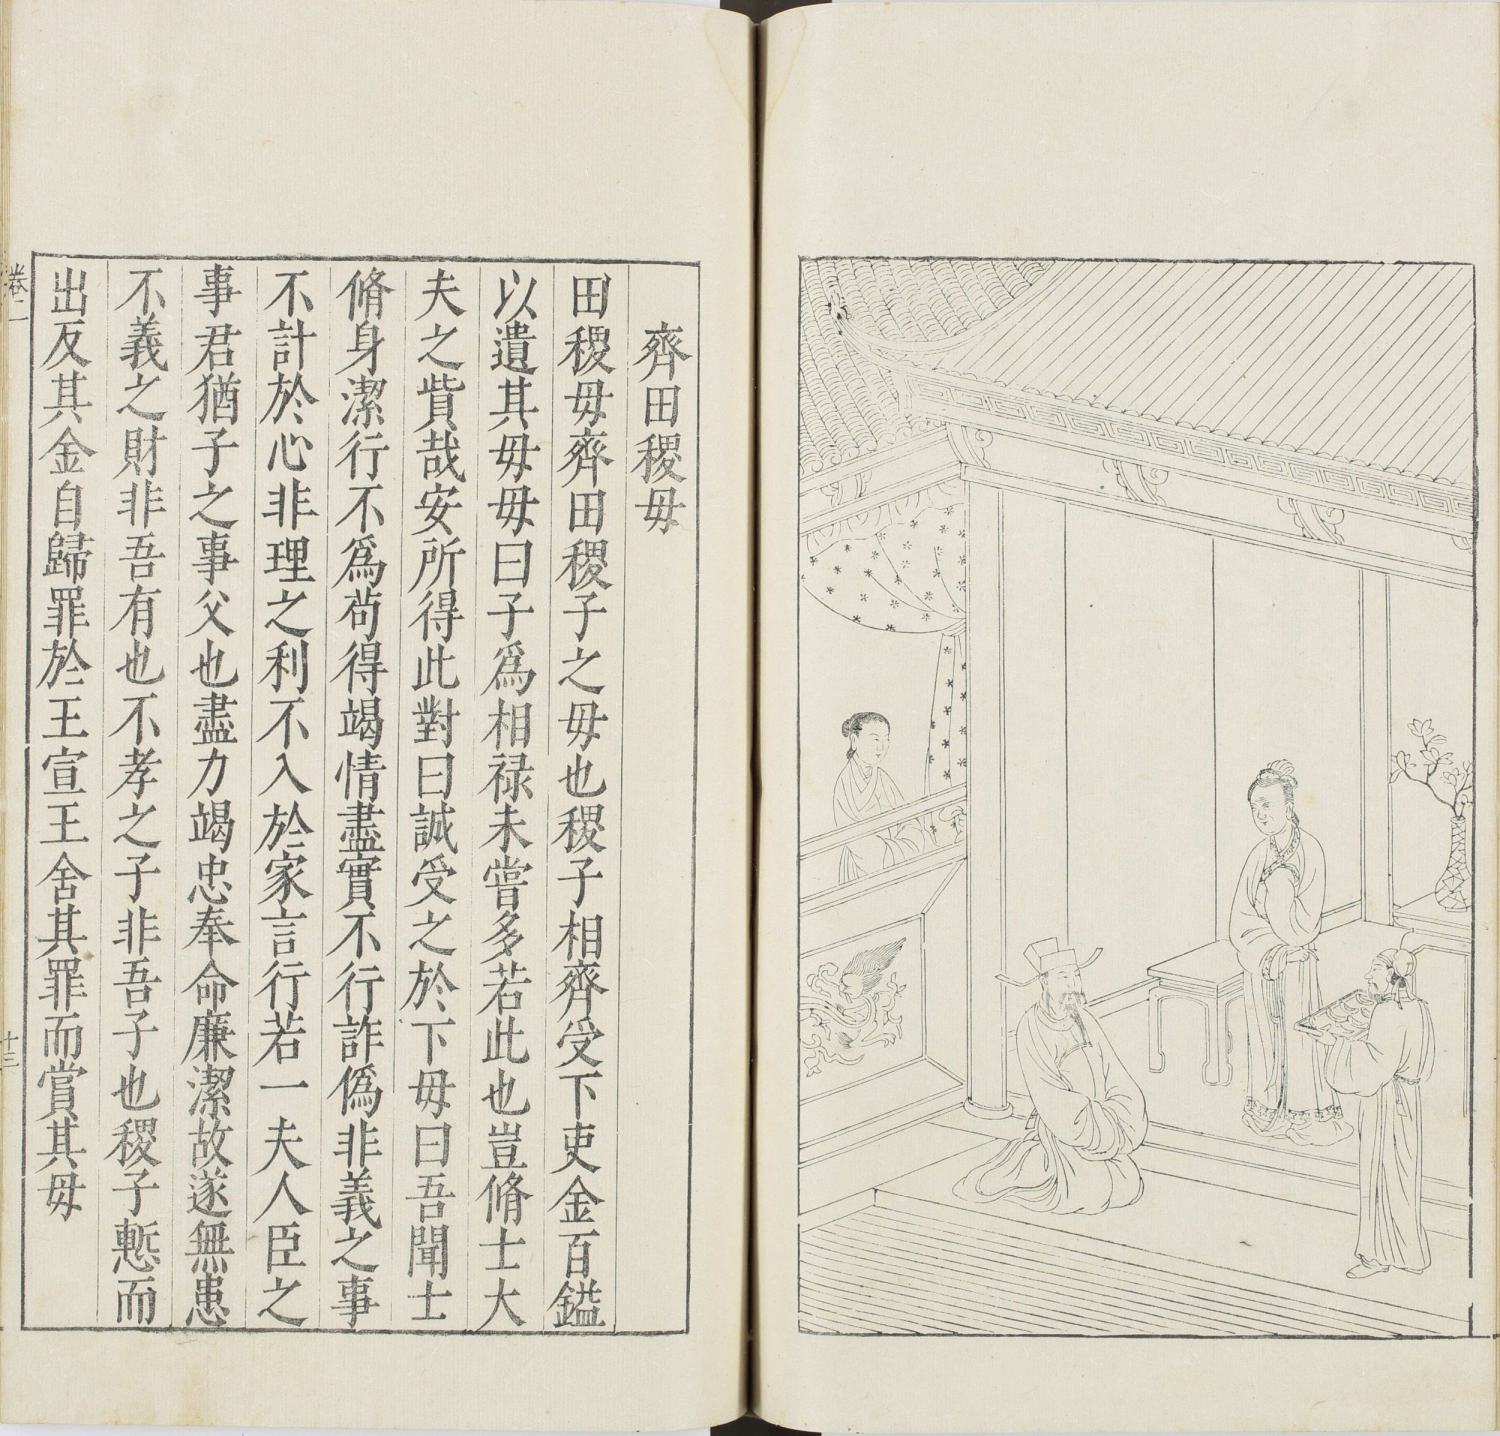 齊田稷母
田稷母齊田稷子之母也稷子相齊受下吏金百鎰
以遺其母母曰子爲相祿未嘗多若此也豈脩士大
夫之貲哉安所得此對曰誠受之於下母曰吾聞士
脩身潔行不爲苟得竭情盡實不行詐僞非義之事
不計於心非理之利不入於家言行若一夫人臣之
事君猶子之事父也盡力竭忠奉命廉潔故遂無患
不義之財非吾有也不孝之子非吾子也稷子慙而
出反其金自歸罪於王宣王舍其罪而賞其母
卷二
十三